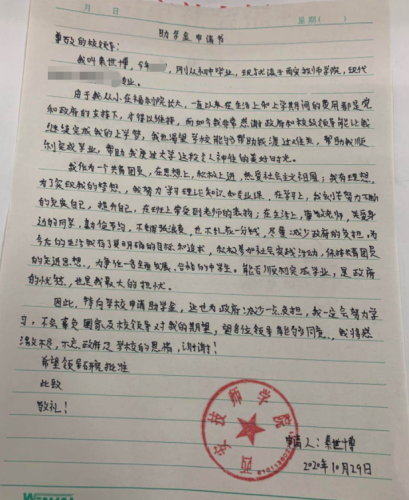 月 日 星期（ ）
助学金申请书
尊敬的校领导：
我叫秦世博，今年 ，刚从初中毕业，现就读于西安技师学院，现代
专业。
由于我从小在福利院长大，一直以来在生活上和上学期间的费用都是党
和政府的支持下，才得以维持，而如今我非常感谢政府和校级领导能让我
继续完成我的上学梦，我也渴望学校能够帮助我渡过难关，帮助我顺
利完成学业，帮助我度过大学这段令人神往的美好时光。
我作为一个共青团员，在思想上，积极上进，热爱社会主义祖国；我有理想，
为了实现我的梦想，我努力学习理论知识和专业课，在学习上，我刻苦努力不断
的完善自己，提升自己，在班上常受到老师的表扬；在生活上，尊敬老师，关爱身
边的同学，勤俭节约，不铺张浪费，也不乱花一分钱，尽量减少政府的负担，为
今天的生活我有了更明确的目标和追求，积极参加社会实践活动，保持共青团员
的先进思想，为争做一名全面发展，合格的中学生。能否顺利完成学业，是政府
的忧愁，也是我最大的担忧。
因此，特向学校申请助学金，这也为政府减少一点负担，我一定会努力学
习，不会辜负国家及校领导对我的期望，望各位领导能够同意。我将感
激不尽，不忘政府及学校的恩情，谢谢！
希望领导百忙批准
此致
敬礼！
西安技师学院
申请人：秦世博
2020年10月29日